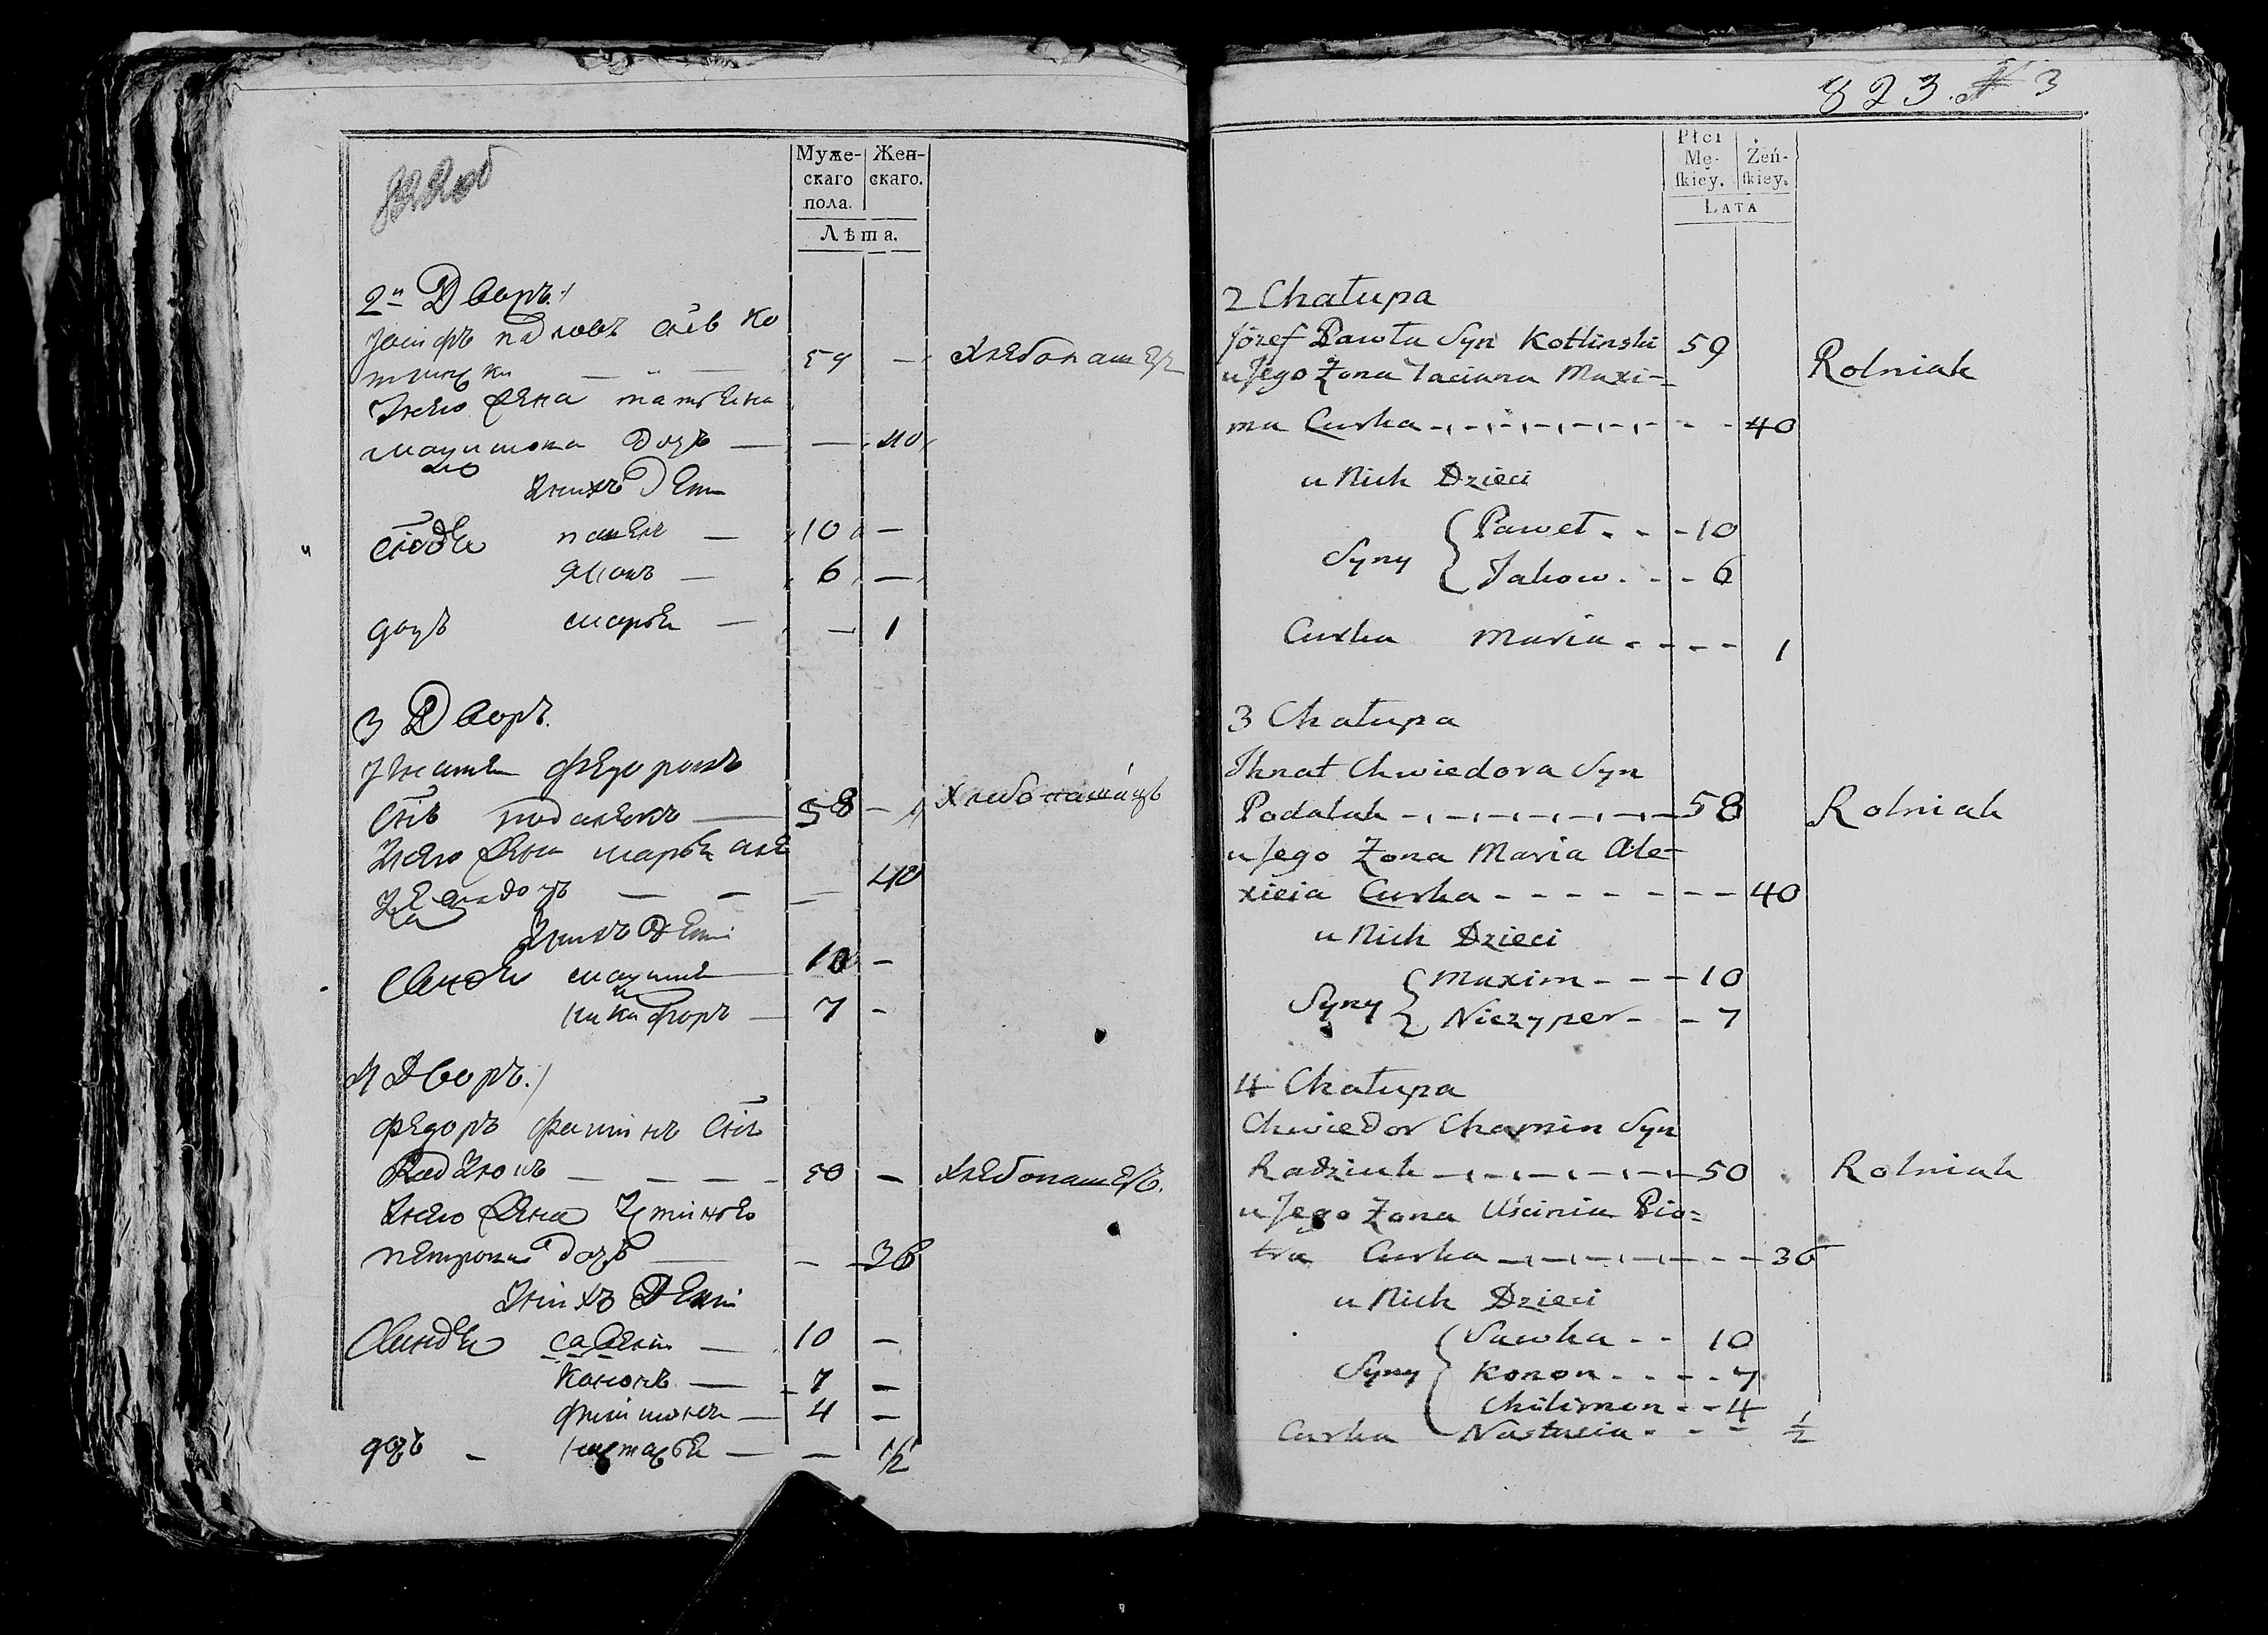 Муже-
скаго
пола.
Жен-
скаго.
Лѣта.
2й Дворъ
Іосифъ павловъ снъ Ко
тлински 59 — хлебопашецъ
Унего жена татьяна
максимова дочь — — 40
Унихъ дети
Сыновья павелъ — 10 —
Яковъ — 6 —
дочь марья — — 1
3 Дворъ
Игнатей федоровъ
снъ подалякъ — 58 — хлебопашецъ
Унего жена марья але
дочь — — — 40
Унихъ дети
максимъ — 10 —
никифоръ — 7 —
4 Дворъ
федоръ фоминъ снъ
Радзюкъ — — — 50 — хлебопашецъ.
Унего жена Устинья
петрова дочь — — 36
Унихъ дети
савелий — 10 —
Кононъ — 7 —
филимонъ — 4 —
дочь — настасья — — 1/2
823. 3
Płci
Mę-
ſkiey.
Żeń-
ſkiey.
LATA
2 Chałupa
Józef Pawła Syn Kotlinski 59 Rolniak
u Jego Żona Taciana Maxi-
ma Curka - - - - - - - - 40
u Nich Dzieci
Syny { Paweł - - - 10
Jakow - - - 6
Curka Maria - - - - 1
3 Chałupa
Ihnat Chwiedora Syn
Podalak - - - - - - - 58 Rolniak
u Jego Żona Maria Ale-
xieia Curka - - - - - - - - 40
u Nich Dzieci
Syny { Maxim - - - 10
Niczyper - - 7
4 Chałupa
Chwiedor Chamin Syn
Radziuk - - - - - - - 50 Rolniak
u Jego Żona Uścinia Pio=
tra Curka - - - - - - - - 36
u Nich Dzieci
Syny { Sawka - - 10
Konon - - - - 7
Chilimon - - 4
Curka Nastasia - - - 1/2